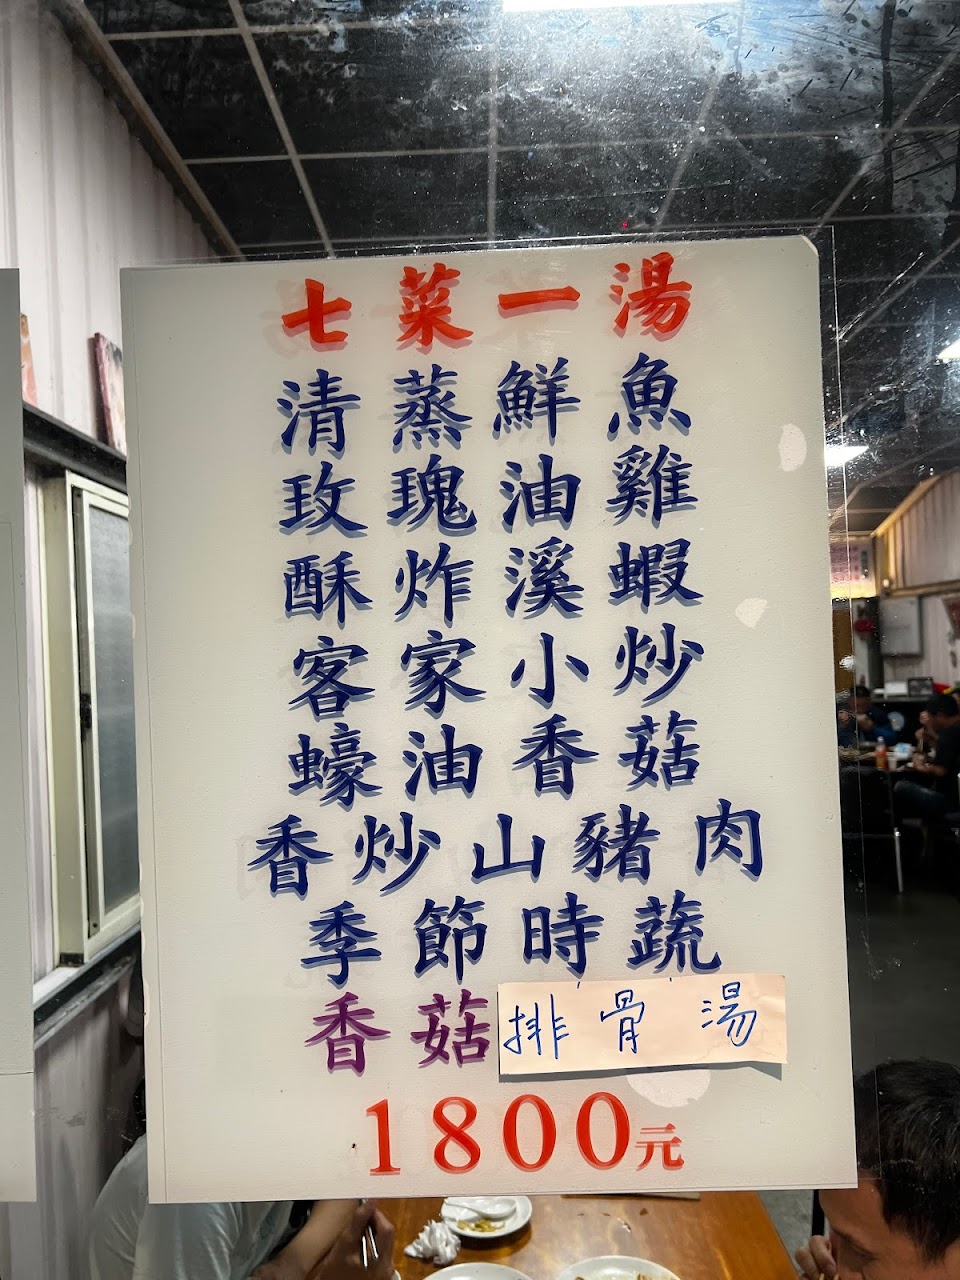 七菜一湯
清蒸鮮魚
玫瑰油雞
酥炸溪蝦
客家小炒
蠔油香菇
香炒山豬肉
季節時蔬
香菇排骨湯
1800元